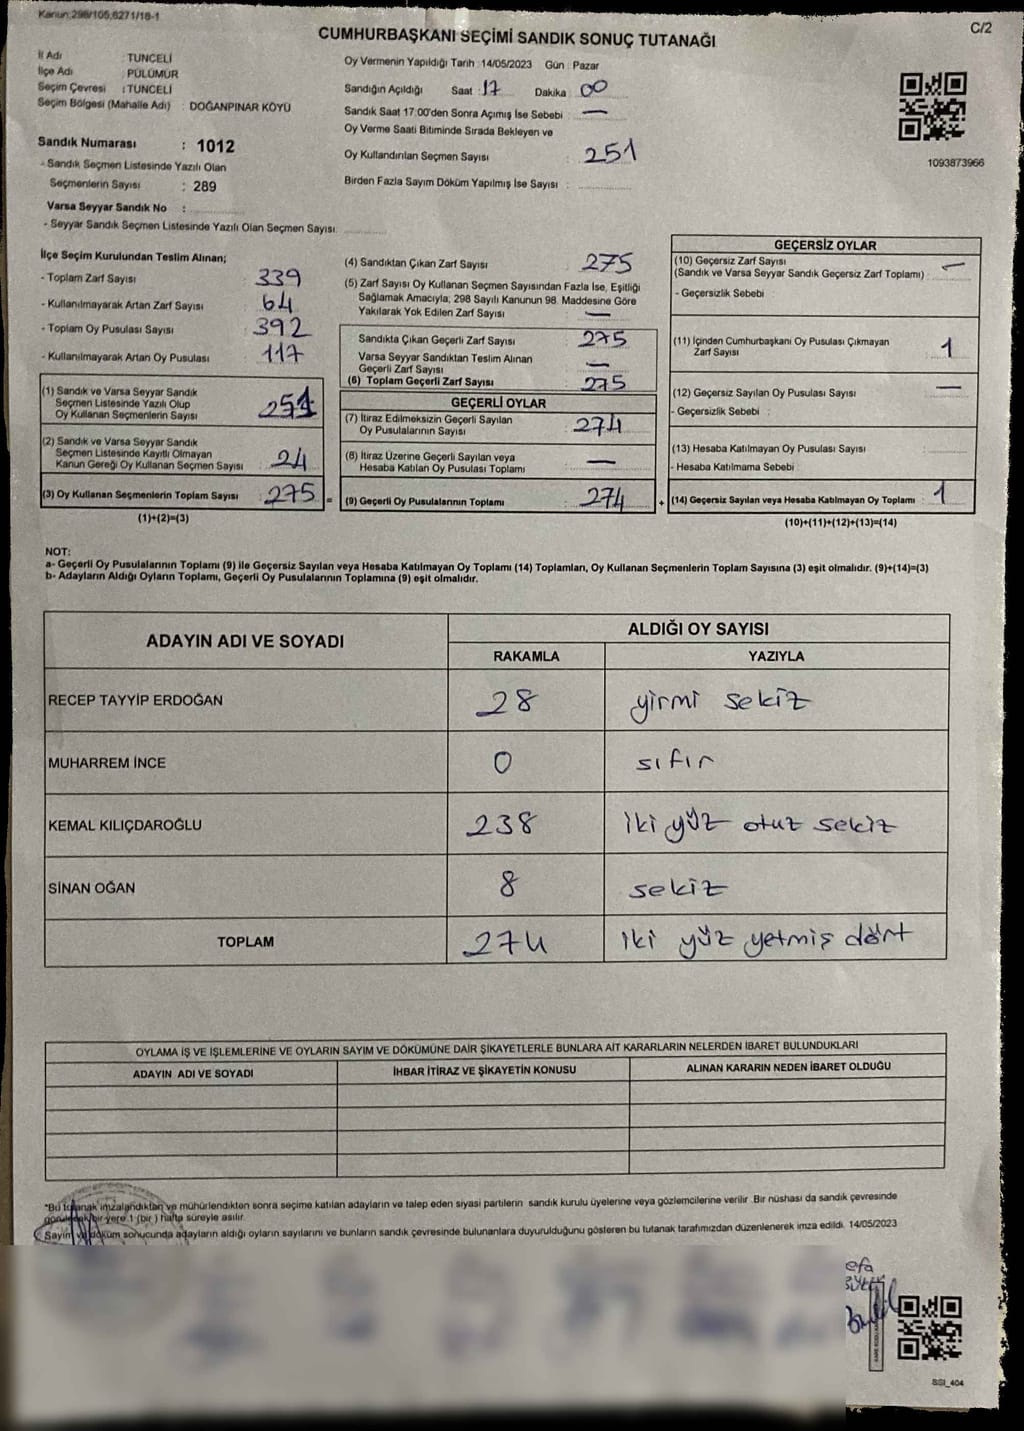 Kanun:298/105,6271/18-1
C/2
CUMHURBAŞKANI SEÇİMİ SANDIK SONUÇ TUTANAĞI
İl Adı : TUNCELİ
İlçe Adı : PÜLÜMÜR
Seçim Çevresi : TUNCELİ
Seçim Bölgesi (Mahalle Adı) : DOĞANPINAR KÖYÜ
Sandık Numarası : 1012
- Sandık Seçmen Listesinde Yazılı Olan
Seçmenlerin Sayısı : 289
Varsa Seyyar Sandık No :
- Seyyar Sandık Seçmen Listesinde Yazılı Olan Seçmen Sayısı:
Oy Vermenin Yapıldığı Tarih : 14/05/2023 Gün : Pazar
Sandığın Açıldığı Saat : 17 Dakika : 00
Sandık Saat 17:00'den Sonra Açımış İse Sebebi : —
Oy Verme Saati Bitiminde Sırada Bekleyen ve
Oy Kullandırılan Seçmen Sayısı : 251
Birden Fazla Sayım Döküm Yapılmış İse Sayısı :
1093873966
İlçe Seçim Kurulundan Teslim Alınan;
- Toplam Zarf Sayısı : 339
- Kullanılmayarak Artan Zarf Sayısı : 64
- Toplam Oy Pusulası Sayısı : 392
- Kullanılmayarak Artan Oy Pusulası : 117
(1) Sandık ve Varsa Seyyar Sandık
Seçmen Listesinde Yazılı Olup
Oy Kullanan Seçmenlerin Sayısı : 251
(2) Sandık ve Varsa Seyyar Sandık
Seçmen Listesinde Kayıtlı Olmayan
Kanun Gereği Oy Kullanan Seçmen Sayısı : 24
(3) Oy Kullanan Seçmenlerin Toplam Sayısı : 275
(1)+(2)=(3)
=
(4) Sandıktan Çıkan Zarf Sayısı : 275
(5) Zarf Sayısı Oy Kullanan Seçmen Sayısından Fazla İse, Eşitliği
Sağlamak Amacıyla; 298 Sayılı Kanunun 98. Maddesine Göre
Yakılarak Yok Edilen Zarf Sayısı : —
Sandıkta Çıkan Geçerli Zarf Sayısı : 275
Varsa Seyyar Sandıktan Teslim Alınan
Geçerli Zarf Sayısı : —
(6) Toplam Geçerli Zarf Sayısı : 275
GEÇERLİ OYLAR
(7) İtiraz Edilmeksizin Geçerli Sayılan
Oy Pusulalarının Sayısı : 274
(8) İtiraz Üzerine Geçerli Sayılan veya
Hesaba Katılan Oy Pusulası Toplamı : —
(9) Geçerli Oy Pusulalarının Toplamı : 274
+
GEÇERSİZ OYLAR
(10) Geçersiz Zarf Sayısı : —
(Sandık ve Varsa Seyyar Sandık Geçersiz Zarf Toplamı)
- Geçersizlik Sebebi
(11) İçinden Cumhurbaşkanı Oy Pusulası Çıkmayan
Zarf Sayısı : 1
(12) Geçersiz Sayılan Oy Pusulası Sayısı : —
- Geçersizlik Sebebi :
(13) Hesaba Katılmayan Oy Pusulası Sayısı :
- Hesaba Katılmama Sebebi
(14) Geçersiz Sayılan veya Hesaba Katılmayan Oy Toplamı : 1
(10)+(11)+(12)+(13)=(14)
NOT:
a- Geçerli Oy Pusulalarının Toplamı (9) ile Geçersiz Sayılan veya Hesaba Katılmayan Oy Toplamı (14) Toplamları, Oy Kullanan Seçmenlerin Toplam Sayısına (3) eşit olmalıdır. (9)+(14)=(3)
b- Adayların Aldığı Oyların Toplamı, Geçerli Oy Pusulalarının Toplamına (9) eşit olmalıdır.
ADAYIN ADI VE SOYADI ALDIĞI OY SAYISI
RAKAMLA YAZIYLA
RECEP TAYYİP ERDOĞAN 28 yirmi sekiz
MUHARREM İNCE 0 sıfır
KEMAL KILIÇDAROĞLU 238 iki yüz otuz sekiz
SİNAN OĞAN 8 sekiz
TOPLAM 274 iki yüz yetmiş dört
OYLAMA İŞ VE İŞLEMLERİNE VE OYLARIN SAYIM VE DÖKÜMÜNE DAİR ŞİKAYETLERLE BUNLARA AİT KARARLARIN NELERDEN İBARET BULUNDUKLARI
ADAYIN ADI VE SOYADI İHBAR İTİRAZ VE ŞİKAYETİN KONUSU ALINAN KARARIN NEDEN İBARET OLDUĞU
*Bu tutanak imzalandıktan ve mühürlendikten sonra seçime katılan adayların ve talep eden siyasi partilerin sandık kurulu üyelerine veya gözlemcilerine verilir. Bir nüshası da sandık çevresinde
görülecek bir yere 1 (bir) hafta süreyle asılır.
Sayım ve döküm sonucunda adayların aldığı oyların sayılarını ve bunların sandık çevresinde bulunanlara duyurulduğunu gösteren bu tutanak tarafımızdan düzenlenerek imza edildi. 14/05/2023
efa
SSI_404